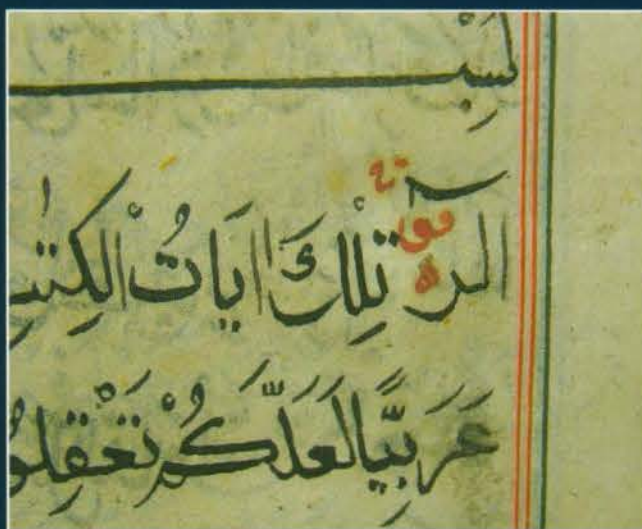 لِبِسْـ
الٓرٰ تِلْكَ اٰيَاتُ الْكِتٰبِ
عَرَبِيًّا لَعَلَّكُمْ تَعْقِلُو